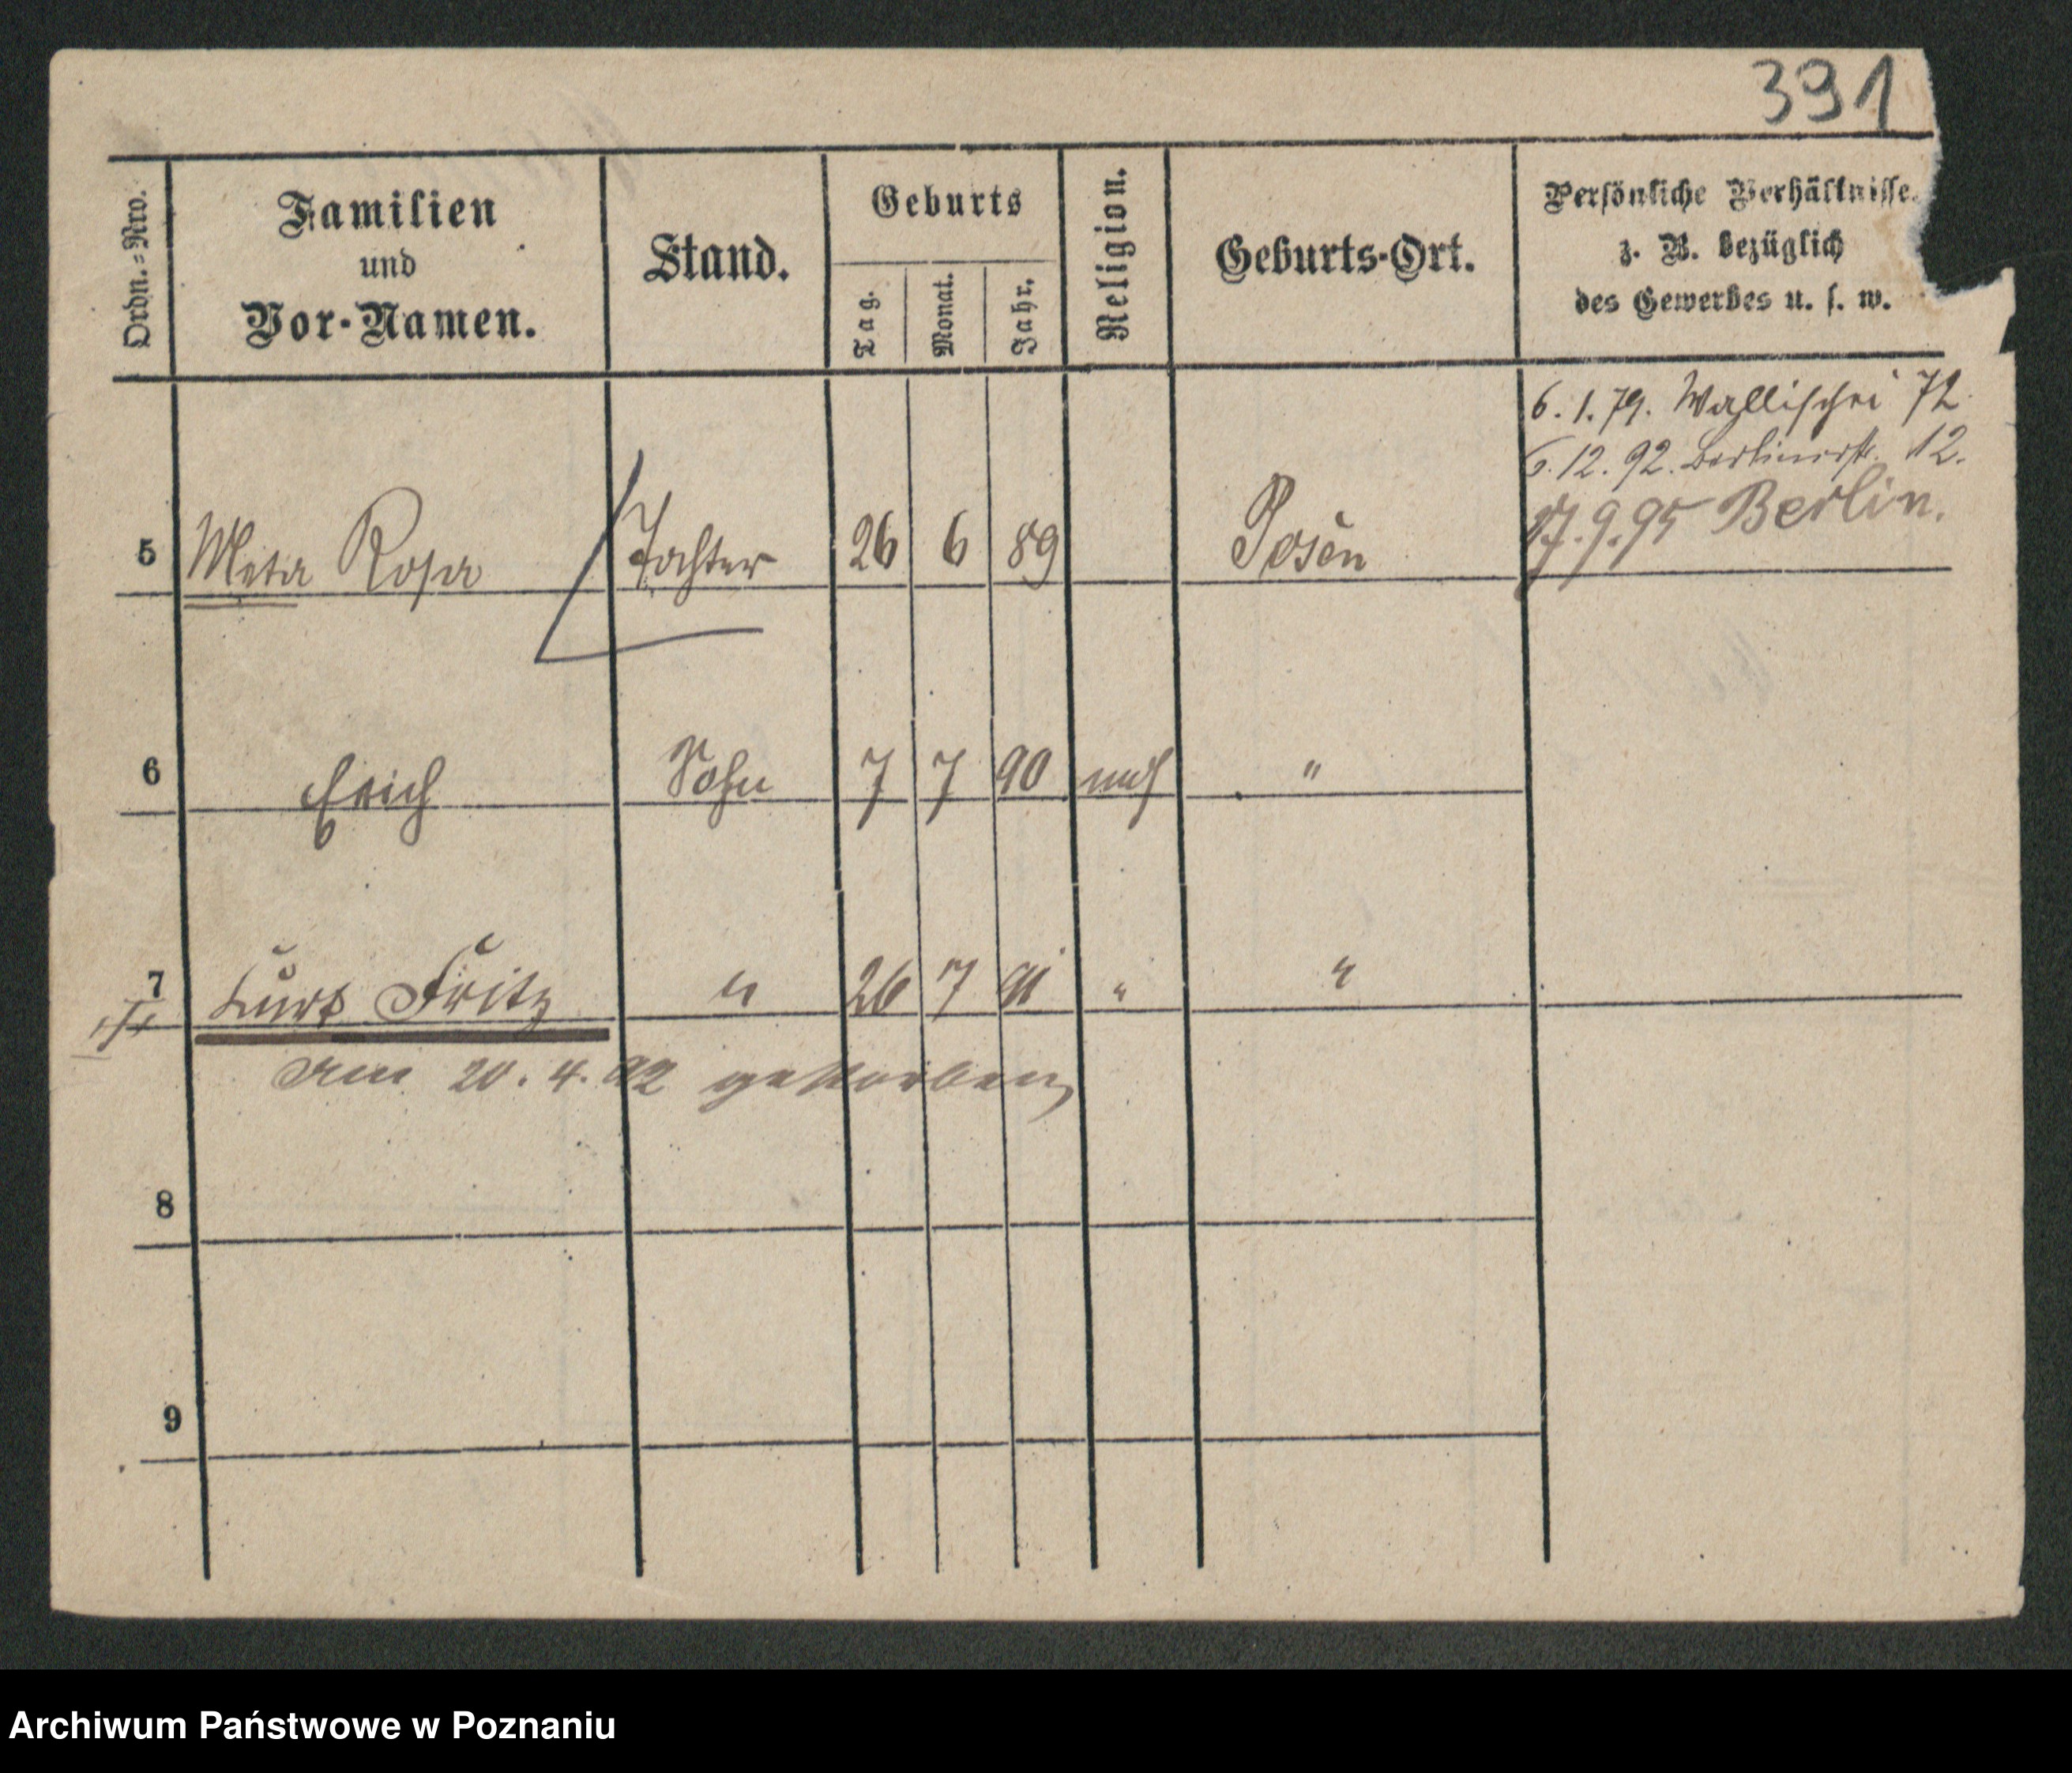 391
Ordn.=Nro.
Familien
und
Vor-Namen.
Stand.
Geburts
Tag.
Monat.
Jahr.
Religion.
Geburts-Ort.
Persönliche Verhältnisse.
z. B. bezüglich
des Gewerbes u. s. w.
6. 1. 79. Wallischei 72
6. 12. 92. Berlinerstr. 12.
17. 9. 95 Berlin.
5 Meta Rosa Tochter 26 6 89 Posen
6 Erich Sohn 7 7 90 "
7 Kurt Fritz " 26 7 91 " "
Am 20. 4. 92 gestorben
8
9
Archiwum Państwowe w Poznaniu